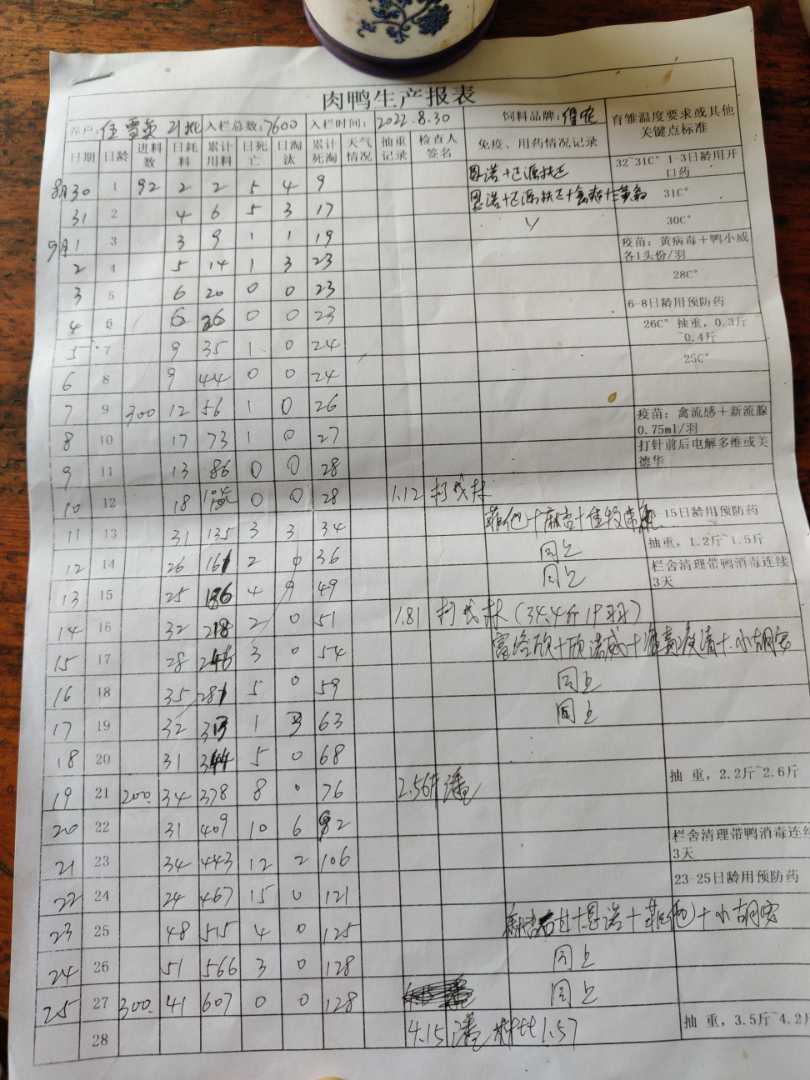 肉鸭生产报表
养户: 21批 入栏总数:7600 入栏时间:2022.8.30 饲料品牌: 育雏温度要求或其他关键点标准
日期 日龄 进料数 日耗料 累计用料 日死亡 日淘汰 累计死淘 天气情况 抽重记录 检查人签名 免疫、用药情况记录
8月30 1 92 2 2 5 4 9 32~31C° 1-3日龄用开口药
31 2 4 6 5 3 17 31C°
9月1 3 3 9 1 1 19 30C°
2 4 5 14 1 3 23 疫苗:黄病毒+鸭小减各1头份/羽
3 5 6 20 0 0 23 28C°
4 6 6 26 0 0 23 6-8日龄用预防药
5 7 9 35 1 0 24 26C° 抽重,0.3斤~0.4斤
6 8 9 44 0 0 24 25C°
7 9 300 12 56 1 0 26
8 10 17 73 1 0 27 疫苗:禽流感+新流腺0.75ml/羽
9 11 13 86 0 0 28 打针前后电解多维或美德华
10 12 18 0 0 28 1.12
11 13 31 135 3 3 34 -15日龄用预防药
12 14 26 161 2 0 36 同上 抽重,1.2斤~1.5斤
13 15 25 186 4 9 49 同上 栏舍清理带鸭消毒连续3天
14 16 32 218 2 0 51 1.81 (34.4斤19羽)
15 17 28 246 3 0 54
16 18 35 281 5 0 59 同上
17 19 32 313 1 3 63 同上
18 20 31 344 5 0 68
19 21 200 34 378 8 0 76 2.56斤 潘 抽重,2.2斤~2.6斤
20 22 31 409 10 6 92
21 23 34 443 12 2 106 栏舍清理带鸭消毒连续3天
22 24 24 467 15 0 121 23-25日龄用预防药
23 25 48 515 4 0 125
24 26 51 566 3 0 128 同上
25 27 300 41 607 0 0 128 同上
28 4.15 潘 料比1.57 抽重,3.5斤~4.2斤